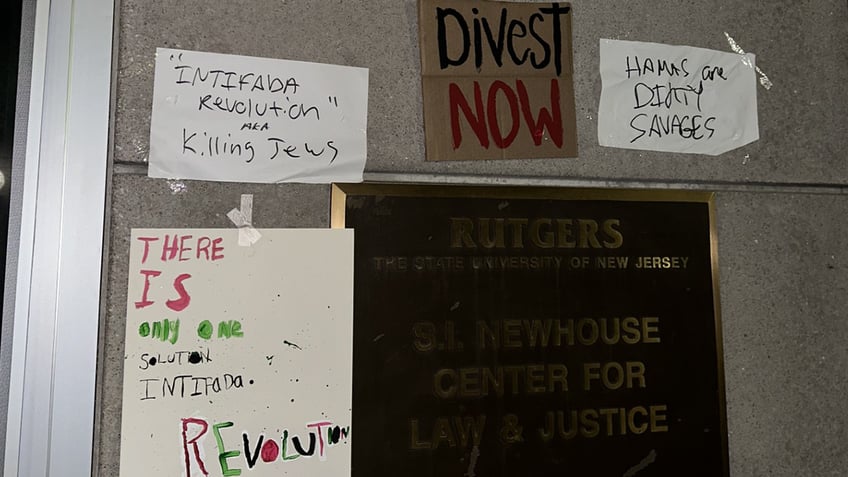 "INTIFADA
Revolution"
AKA
Killing Jews
Divest
NOW
HAMAS are
DIRTY
SAVAGES
THERE
IS
only one
SOLUTION
INTIFADA.
REVOLUTION
RUTGERS
THE STATE UNIVERSITY OF NEW JERSEY
S.I. NEWHOUSE
CENTER FOR
LAW & JUSTICE